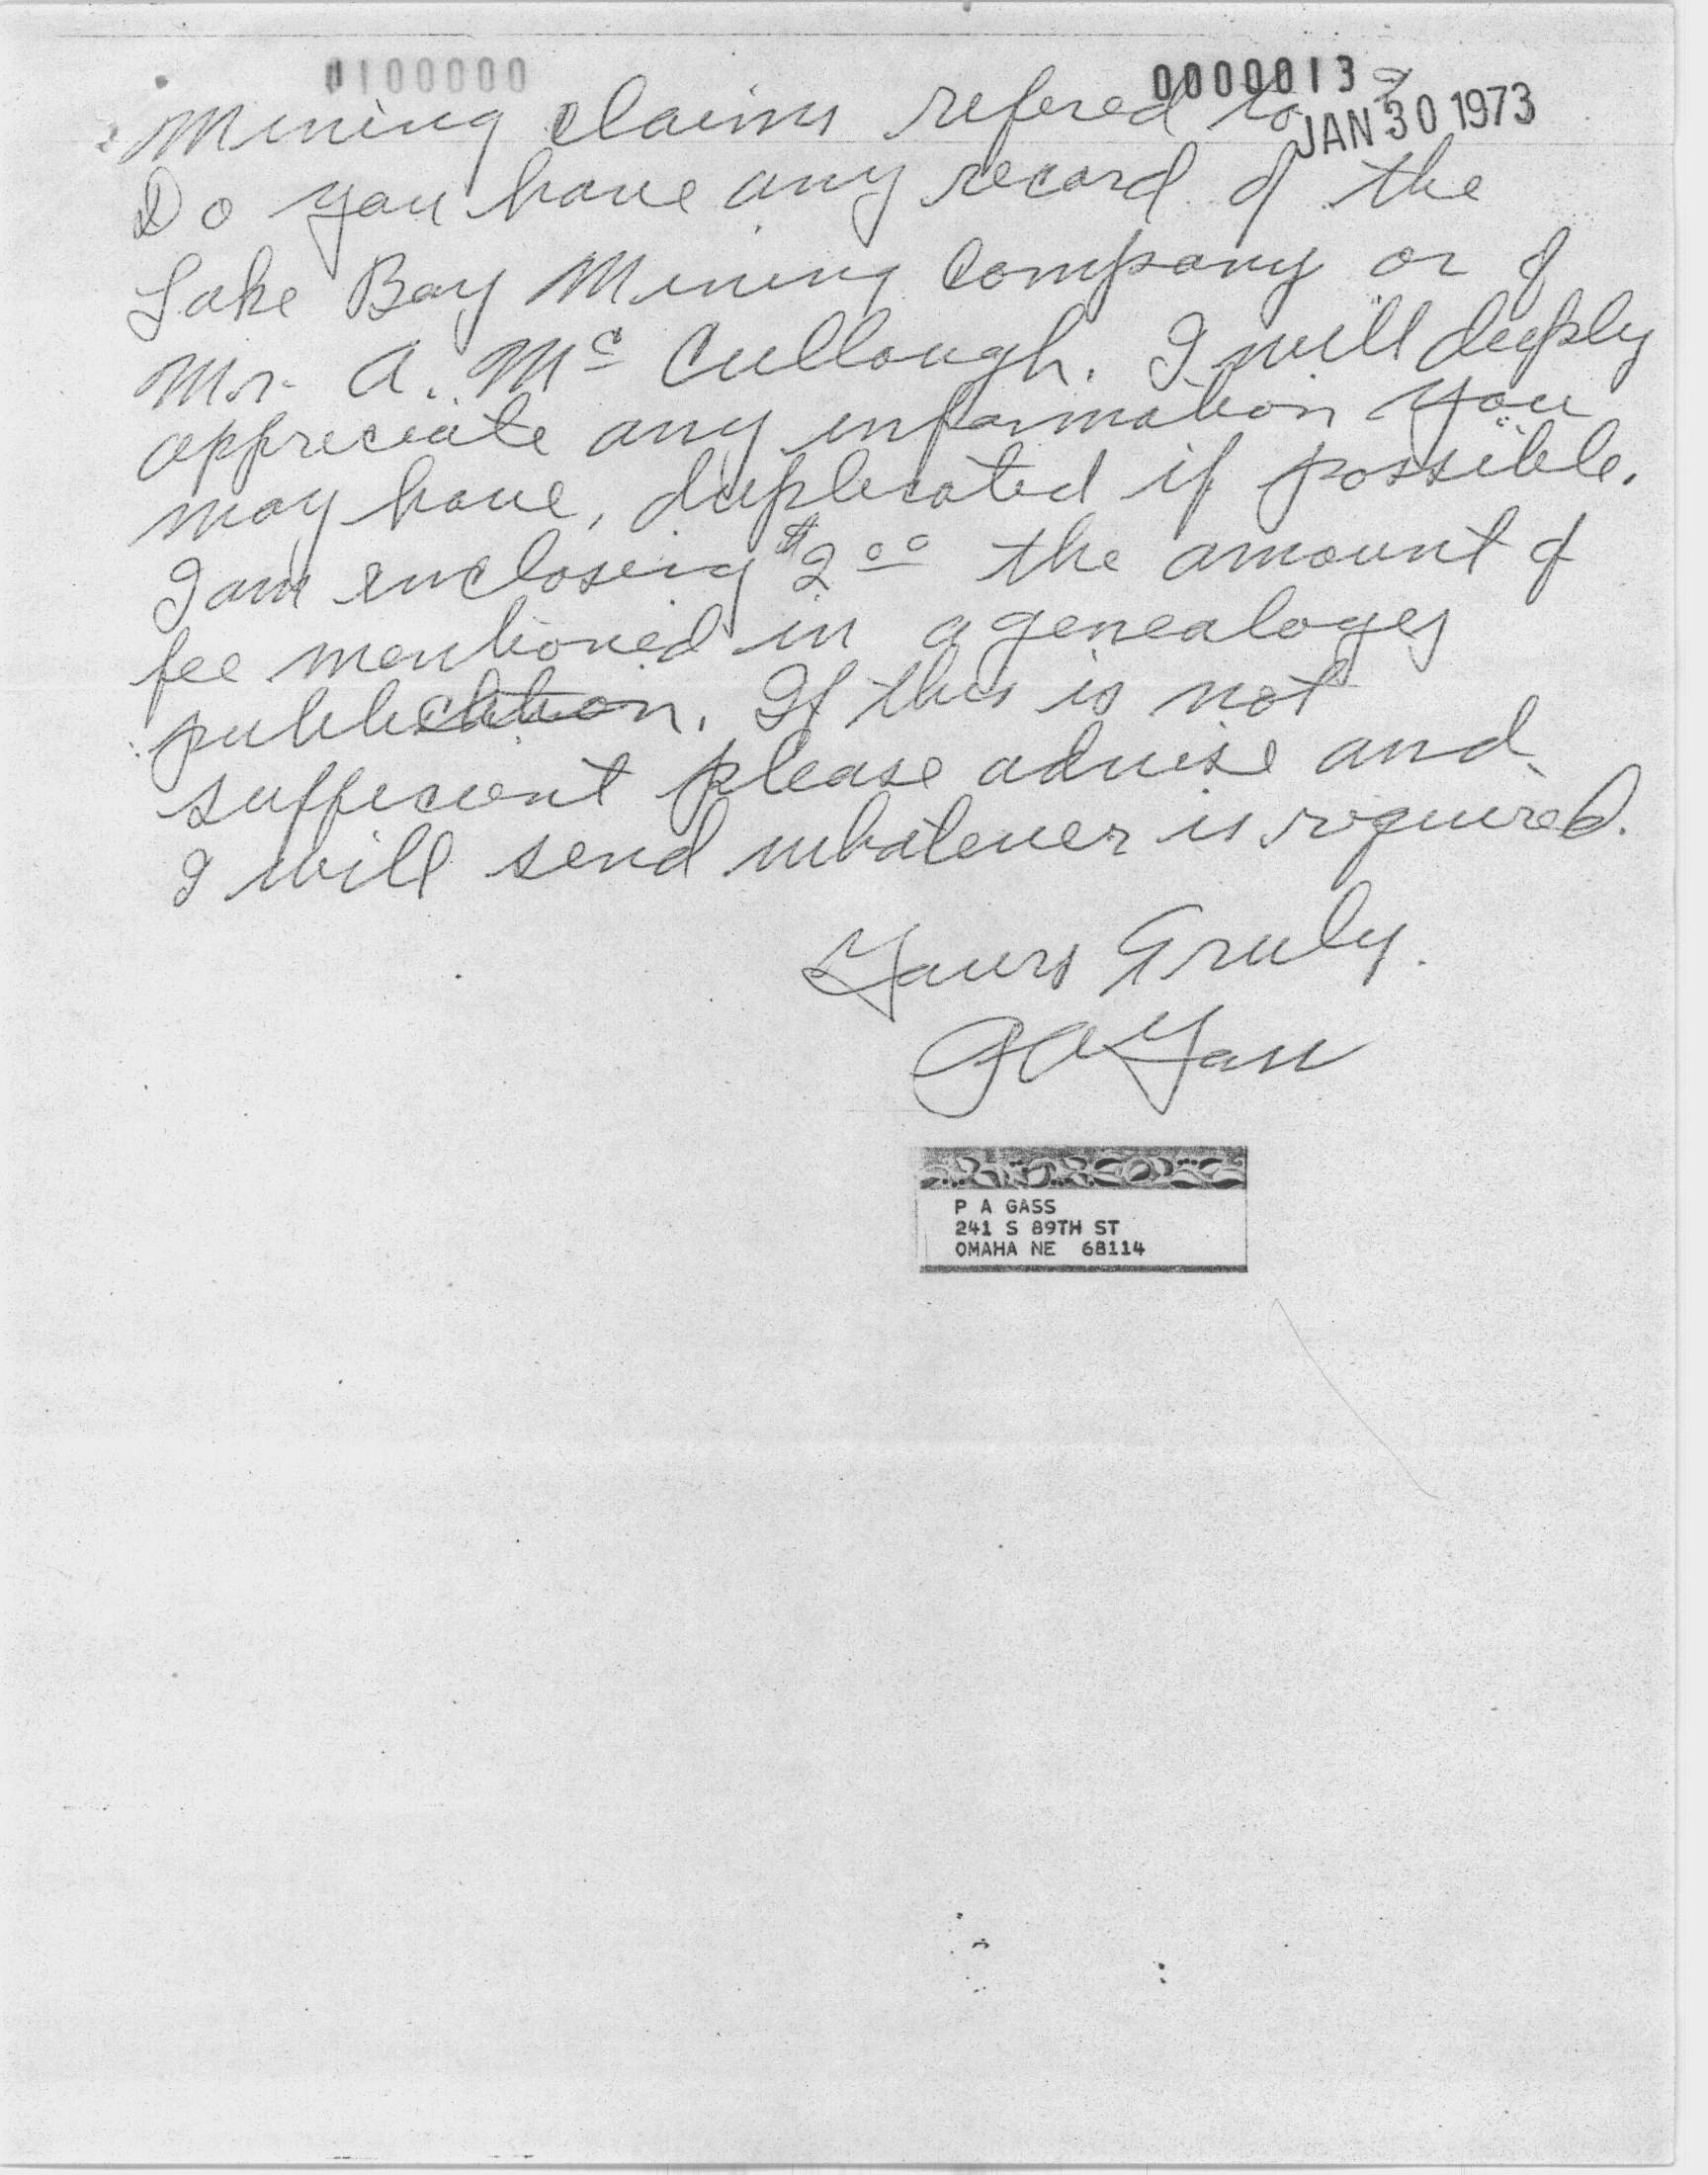 0100000
0000013
JAN 30 1973
Mining claims refered to
Do you have any record of the
Lake Bay Mining Company or of
Mr. A. Mc Cullough. I will deeply
appreciate any information you
may have, duplicated if possible.
I am enclosing $2 00 the amount of
fee mentioned in a genealogy
publication. If this is not
sufficient please advise and
I will send whatever is required.
Yours Truly.
P A Gass
P A GASS
241 S 89TH ST
OMAHA NE 68114